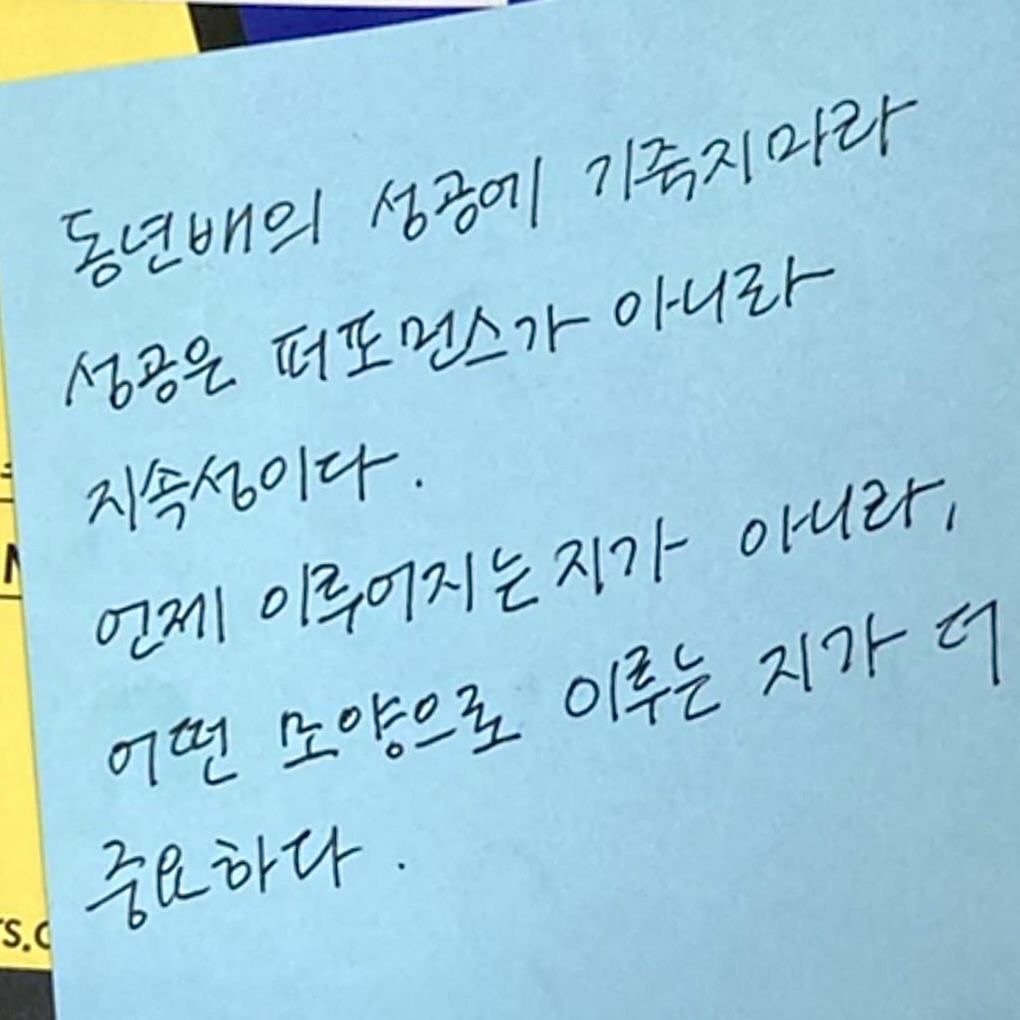 동년배의 성공에 기죽지마라
성공은 퍼포먼스가 아니라
지속성이다.
언제 이루어지는지가 아니라,
어떤 모양으로 이루는 지가 더
중요하다.
rs.c